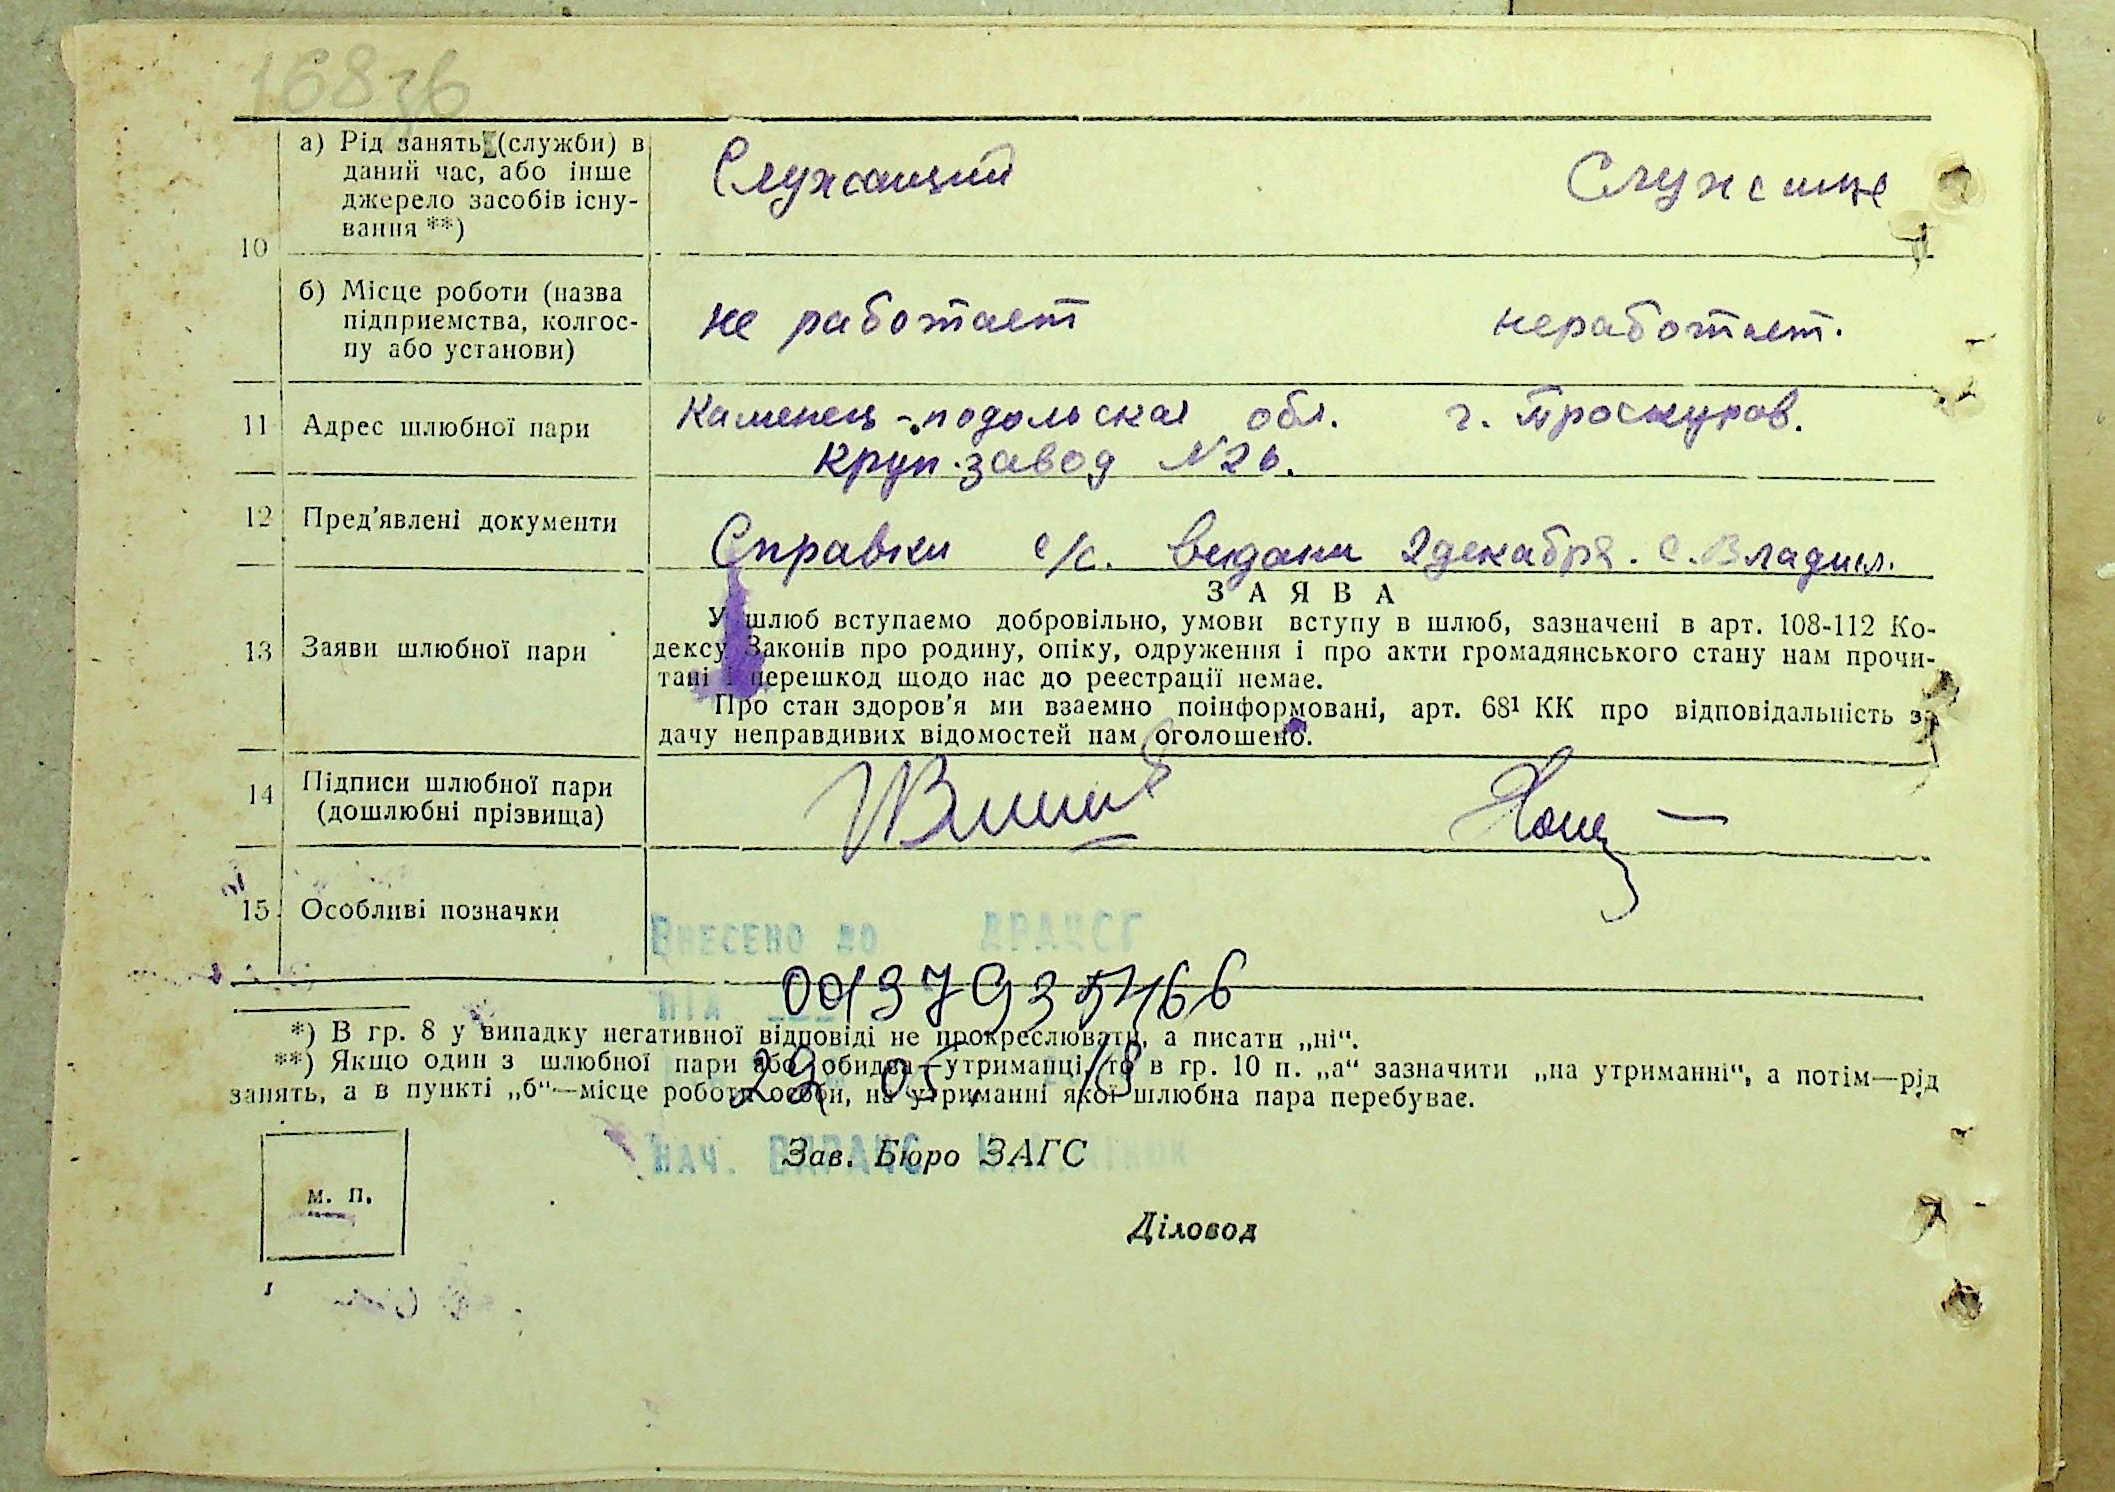 168зв
10
а) Рід занять (служби) в
даний час, або інше
джерело засобів існу-
вання **)
Служащий
Служащие
б) Місце роботи (назва
підприємства, колгос-
пу або установи)
не работает
неработает.
11 Адрес шлюбної пари
Каменец-подольская обл. г. Проскуров.
Круп.завод №26.
12 Пред'явлені документи
Справки с/с. видани 2декабря. с. Владисл.
13 Заяви шлюбної пари
ЗАЯВА
У шлюб вступаємо добровільно, умови вступу в шлюб, зазначені в арт. 108-112 Ко-
дексу Законів про родину, опіку, одруження і про акти громадянського стану нам прочи-
тані і перешкод щодо нас до реєстрації немає.
Про стан здоров'я ми взаємно поінформовані, арт. 68¹ КК про відповідальність за
дачу неправдивих відомостей нам оголошено.
14 Підписи шлюбної пари
(дошлюбні прізвища)
15 Особливі позначки
Внесено до ДРАЦСГ
00137935466
*) В гр. 8 у випадку негативної відповіді не прокреслювати, а писати „ні“.
**) Якщо один з шлюбної пари або обидва—утриманці, то в гр. 10 п. „а“ зазначити „на утриманні“, а потім—рід
29 05 18
занять, а в пункті „б“—місце роботи особи, на утриманні якої шлюбна пара перебуває.
Зав. Бюро ЗАГС
Нач.
м. п.
Діловод